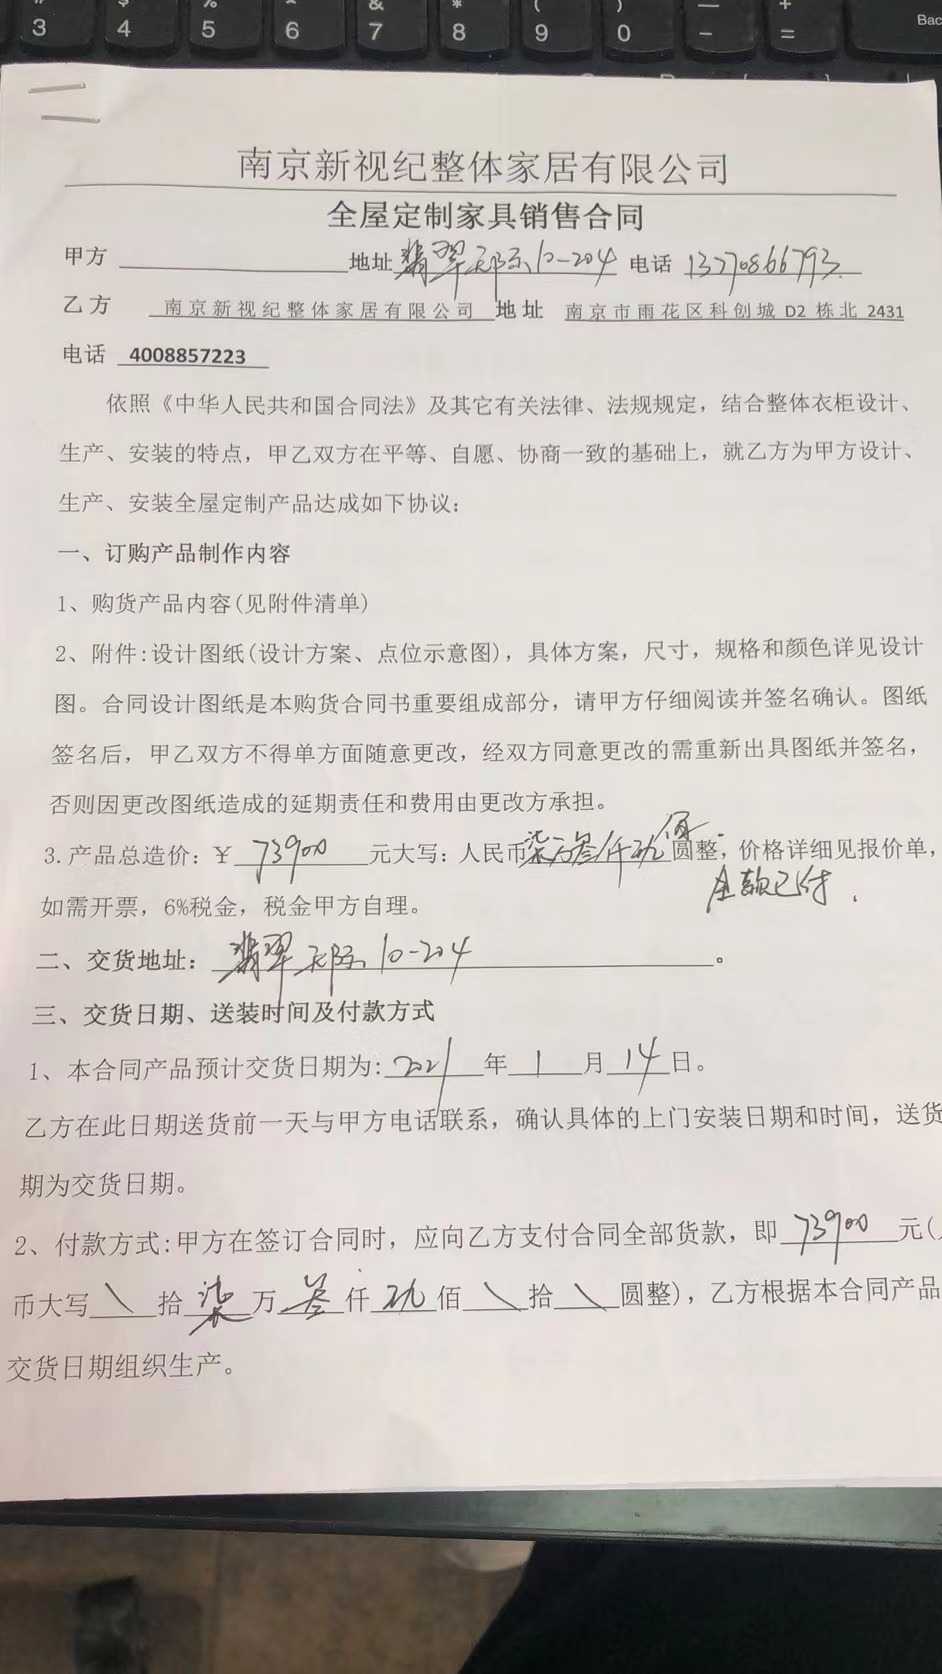 # 3 $ 4 % 5 ^ 6 & 7 * 8 ( 9 ) 0 — - + = Bac
南京新视纪整体家居有限公司
全屋定制家具销售合同
甲方 地址 翡翠天际10-204 电话 13770866793
乙方 南京新视纪整体家居有限公司 地址 南京市雨花区科创城 D2 栋北 2431
电话 4008857223
依照《中华人民共和国合同法》及其它有关法律、法规规定，结合整体衣柜设计、
生产、安装的特点，甲乙双方在平等、自愿、协商一致的基础上，就乙方为甲方设计、
生产、安装全屋定制产品达成如下协议：
一、订购产品制作内容
1、购货产品内容(见附件清单)
2、附件:设计图纸(设计方案、点位示意图)，具体方案，尺寸，规格和颜色详见设计
图。合同设计图纸是本购货合同书重要组成部分，请甲方仔细阅读并签名确认。图纸
签名后，甲乙双方不得单方面随意更改，经双方同意更改的需重新出具图纸并签名，
否则因更改图纸造成的延期责任和费用由更改方承担。
3.产品总造价：￥ 73900 元大写：人民币柒万叁仟玖佰圆整，价格详细见报价单，
全款已付.
如需开票，6%税金，税金甲方自理。
二、交货地址： 翡翠天际10-204 。
三、交货日期、送装时间及付款方式
1、本合同产品预计交货日期为: 2021 年 1 月 14 日。
乙方在此日期送货前一天与甲方电话联系，确认具体的上门安装日期和时间，送货
期为交货日期。
2、付款方式:甲方在签订合同时，应向乙方支付合同全部货款，即 73900 元(
币大写 \ 拾 柒 万 叁 仟 玖 佰 \ 拾 \ 圆整)，乙方根据本合同产品
交货日期组织生产。